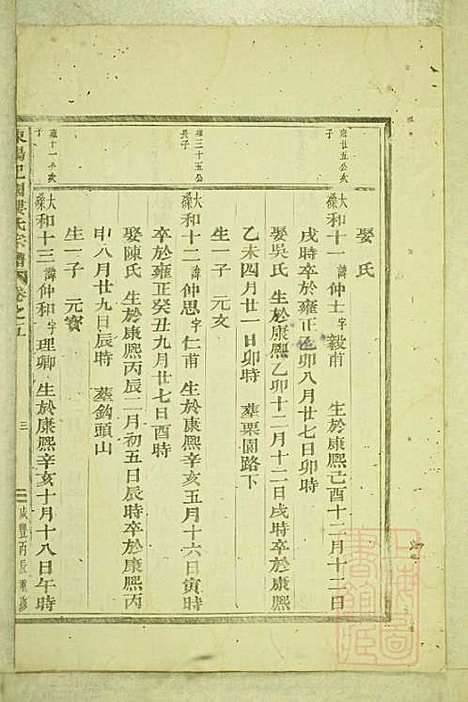 娶氏
雍廿五公次子
大和十一 諱仲士字毅甫 生於康熙己酉十二月十二日
戌時卒於雍正乙卯八月廿七日卯時
娶吳氏 生於康熙乙卯十二月十二日戌時卒於康熙
乙未四月廿一日卯時 葬栗園路下
生一子 元亥
雍三十五公長子
大和十二 諱仲思字仁甫 生於康熙辛亥五月十六日寅時
卒於雍正癸丑九月廿七日酉時
娶陳氏 生於康熙丙辰二月初五日辰時卒於康熙丙
申八月廿九日辰時 葬鈎頭山
生一子 元寳
雍十一 次子
大和十三 諱仲和字理卿 生於康熙辛亥十月十八日午時
東陽 婁氏宗譜 卷之五 三 咸豐丙辰重修
上海圖書館藏